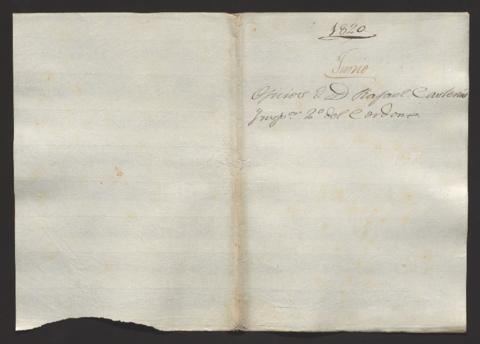 1820
Junio
Oficios de D Rafael
Insp.or 2.o del Cordon